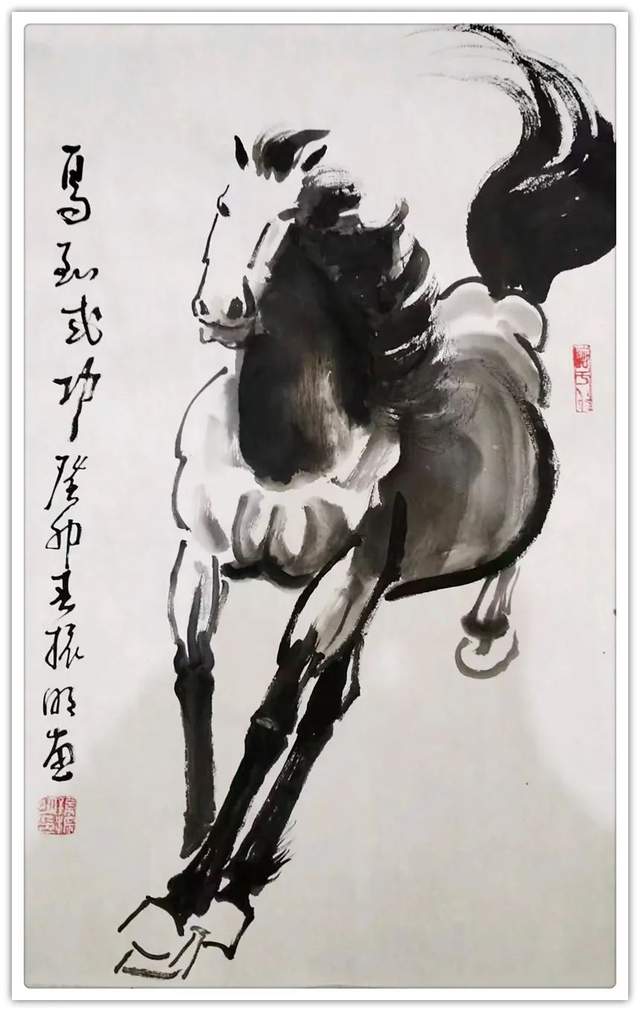 馬到成功癸卯振明画